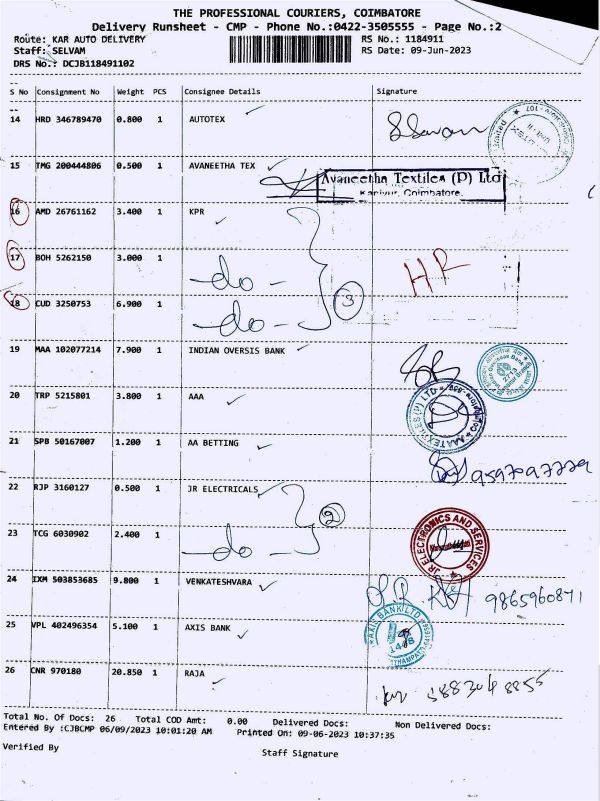 THE PROFESSIONAL COURIERS, COIMBATORE
Delivery Runsheet - CMP - Phone No.:0422-3505555 - Page No.:2
Route: KAR AUTO DELIVERY RS No.: 1184911
Staff: SELVAM RS Date: 09-Jun-2023
DRS No.: DCJB118491102
S No Consignment No Weight PCS Consignee Details Signature
14 HRD 346789470 0.800 1 AUTOTEX
15 TMG 200444806 0.500 1 AVANEETHA TEX
Avaneetha Textiles (P) Ltd
Kaniyur, Coimbatore.
16 AMD 26761162 3.400 1 KPR
17 BOH 5262150 3.000 1 -do- HR
18 CUD 3250753 6.900 1 -do- 3
19 MAA 102077214 7.900 1 INDIAN OVERSIS BANK
20 TRP 5215801 3.800 1 AAA
21 SPB 50167007 1.200 1 AA BETTING
22 RJP 3160127 0.500 1 JR ELECTRICALS
2
23 TCG 6030902 2.400 1 -do- JR ELECTRONICS AND SERVICES
24 IXM 503853685 9.800 1 VENKATESHVARA 9865960871
25 VPL 402496354 5.100 1 AXIS BANK AXIS BANK LTD
1448
26 CNR 970180 20.850 1 RAJA
Total No. Of Docs: 26 Total COD Amt: 0.00 Delivered Docs: Non Delivered Docs:
Entered By :CJBCMP 06/09/2023 10:01:20 AM Printed On: 09-06-2023 10:37:35
Verified By Staff Signature